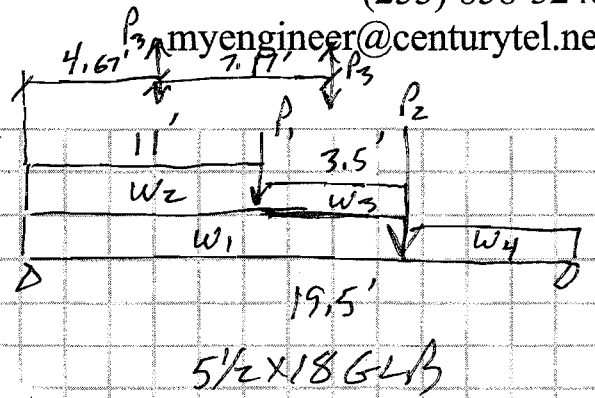 P3 myengineer@centurytel.ne
4.67' 7.17' P3
P1 P2
11' 3.5'
W2 W3
W1 W4
19.5'
5 1/2 X 18 GLB